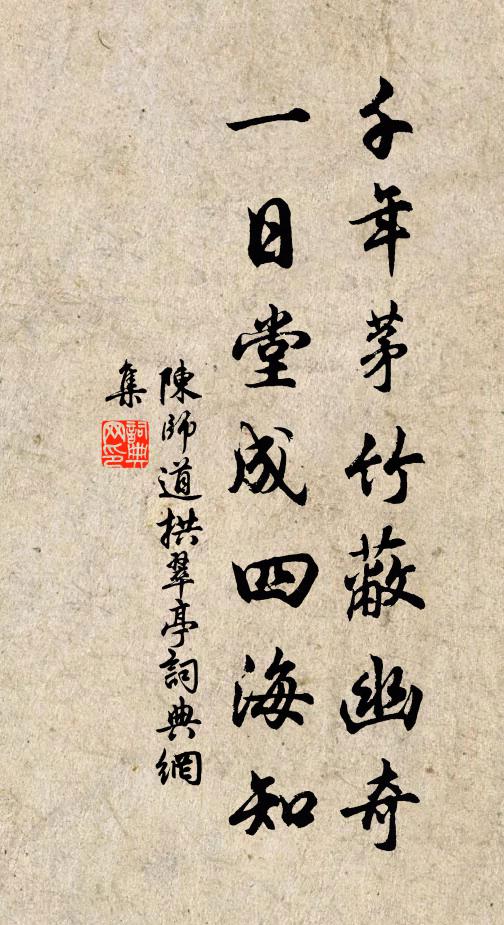 千年茅竹蔽幽奇
一日堂成四海知
陳師道拱翠亭詞典網
集
詞典
网印